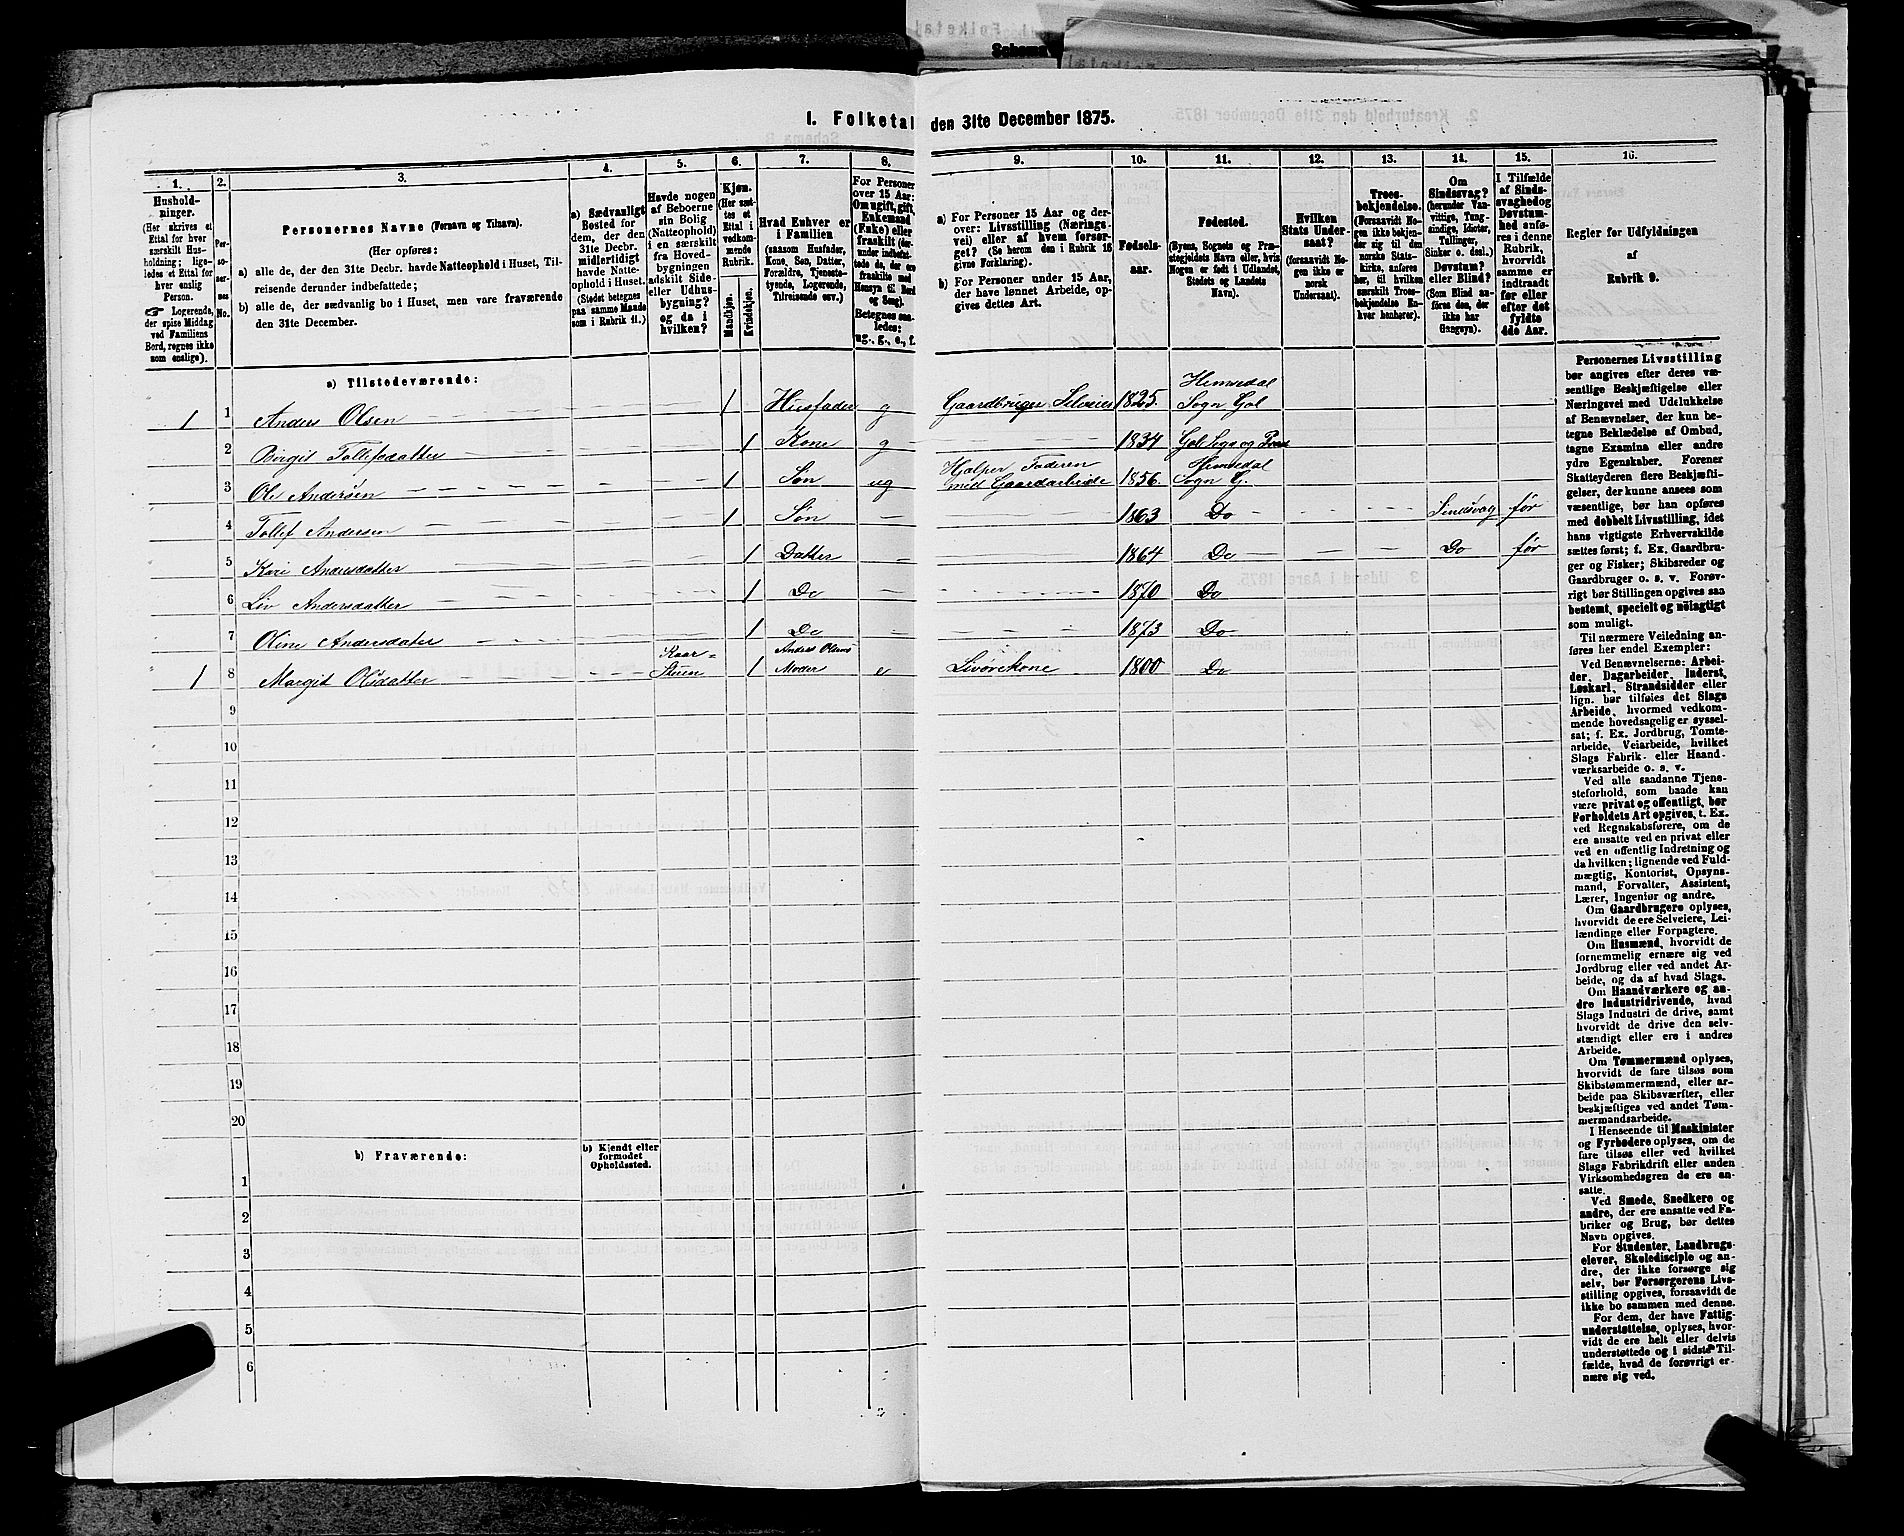 Schema
I. Folketal den 31te December 1875.
1.
Hushold-
ninger.
(Her skrives et
Ettal for hver
særskilt Hus-
holdning; lige-
ledes et Ettal for
hver enslig
Person.
☞ Logerende,
der spise Middag
ved Familiens
Bord, regnes ikke
som enslige).
2.
Per-
so-
ner-
nes
No.
3.
Personernes Navne (Fornavn og Tilnavn).
(Her opføres:
a) alle de, der den 31te Decbr. havde Natteophold i Huset, Til-
reisende derunder indbefattede;
b) alle de, der sædvanlig bo i Huset, men vare fraværende
den 31te December.
4.
a) Sædvanligt
Bosted for
dem, der den
31te Decbr.
midlertidigt
havde Natte-
ophold i Huset.
(Stedet betegnes
paa samme Maade
som i Rubrik 11.)
5.
Havde nogen
af Beboerne
sin Bolig
(Natteophold)
i en særskilt
fra Hoved-
bygningen
adskilt Side-
eller Udhus-
bygning?
og da i
hvilken?
6.
Kjøn.
(Her sæt-
tes et
Ettal i
vedkom-
mende
Rubrik.
Mandkjøn.
Kvindekjøn.
7.
Hvad Enhver er
i Familien
(saasom Husfader,
Kone, Søn, Datter,
Forældre, Tjeneste-
tyende, Logerende,
Tilreisende osv.)
8.
For Personer
over 15 Aar:
Om ugift, gift,
Enkemand
(Enke) eller
fraskilt (der-
under indbefat-
tede de, der ere
fraskilte med
Hensyn til Bord
og Seng).
Betegnes saa-
ledes:
ug., g., e., f.
9.
a) For Personer 15 Aar og der-
over: Livsstilling (Nærings-
vei) eller af hvem forsør-
get? (Se herom den i Rubrik 16
givne Forklaring).
b) For Personer under 15 Aar,
der have lønnet Arbeide, op-
gives dettes Art.
10.
Fødsels-
aar.
11.
Fødested.
(Byens, Sognets og Præ-
stegjeldets Navn eller, hvis
Nogen er født i Udlandet,
Stedets og Landets
Navn).
12.
Hvilken
Stats Under-
saat?
(forsaavidt No-
gen ikke er
norsk
Undersaat).
13.
Troes-
bekjendelse.
(Forsaavidt No-
gen ikke bekjen-
der sig til den
norske Stats-
kirke, anføres
her, til hvilken
særskilt Troes-
bekjendelse En-
hver henhører).
14.
Om
Sindssvag?
(herunder Van-
vittige, Tung-
sindige, Idioter,
Tullinger,
Sinker o. desl.)
Døvstum?
eller Blind?
(Som Blind an-
føres den, der
ikke har
Gangsyn).
15.
I Tilfælde
af Sinds-
svaghed og
Døvstum-
hed anfø-
res i denne
Rubrik,
hvorvidt
samme er
indtraadt
før eller
efter det
fyldte
4de Aar.
16.
Regler for Udfyldningen
af
Rubrik 9.
a) Tilstedeværende:
1 1 Anders Olsen 1 Husfader g Gaardbruger Selveier 1825. Hemsedal Sogn Gol
2 Birgit Tollefsdatter 1 Kone g 1834 Gol Sogn og
3 Ole Andersen 1 Søn ug Hjælper Faderen med Gaardarbeide 1856. Hemsedal Sogn G.
4 Tollef Andersen 1 Søn — 1863 Do Sindsvag før
5 Kari Andersdatter 1 Datter — 1864 Do Do før
6 Liv Andersdatter 1 Do — 1870 Do
7 Oline Andersdatter 1 Do — 1873 Do
1 8 Margit Olsdatter Kaar= Stuen 1 Anders Olsens Moder e Livørekone 1800 Do
9
10
11
12
13
14
15
16
17
18
19
20
b) Fraværende:
b) Kjendt eller
formodet
Opholdssted.
1
2
3
4
5
6
Personernes Livsstilling
bør angives efter deres væ-
sentlige Beskjæftigelse eller
Næringsvei med Udelukkelse
af Benævnelser, der kun be-
tegne Beklædelse af Ombud,
tagne Examina eller andre
ydre Egenskaber. Forener
Skatteyderen flere Beskjæfti-
gelser, der kunne ansees som
væsentlige, bør han opføres
med dobbelt Livsstilling, idet
hans vigtigste Erhvervskilde
sættes først; f. Ex. Gaardbru-
ger og Fisker; Skibsreder og
Gaardbruger o. s. v. Forøv-
rigt bør Stillingen opgives saa
bestemt, specielt og nøiagtigt
som muligt.
Til nærmere Veiledning an-
føres her endel Exempler:
Ved Benævnelserne: Arbei-
der, Dagarbeider, Inderst,
Løskarl, Strandsidder eller
lign. bør tilføies det Slags
Arbeide, hvormed vedkom-
mende hovedsagelig er syssel-
sat; f. Ex. Jordbrug, Tomte-
arbeide, Veiarbeide, hvilket
Slags Fabrik- eller Haand-
værksarbeide o. s. v.
Ved alle saadanne Tjene-
steforhold, som baade kan
være privat og offentligt, bør
Forholdets Art opgives, t. Ex.
ved Regnskabsførere, om de
ere ansatte ved en privat eller
ved en offentlig Indretning og
da hvilken; lignende ved Fuld-
mægtig, Kontorist, Opsyns-
mand, Forvalter, Assistent,
Lærer, Ingeniør og andre.
Om Gaardbrugere oplyses,
hvorvidt de ere Selveiere, Lei-
lændinge eller Forpagtere.
Om Husmænd, hvorvidt de
fornemmelig ernære sig ved
Jordbrug eller ved andet Ar-
beide, og da af hvad Slags.
Om Haandværkere og an-
dre Industridrivende, hvad
Slags Industri de drive, samt
hvorvidt de drive den selv-
stændigt eller ere i andres
Arbeide.
Om Tømmermænd oplyses,
hvorvidt de fare tilsøs som
Skibstømmermænd, eller ar-
beide paa Skibsværfter, eller
beskjæftiges ved andet Tøm-
mermandsarbeide.
I Henseende til Maskinister
og Fyrbødere oplyses, om de
fare tilsøs eller ved hvilket
Slags Fabrikdrift eller anden
Virksomhedsgren de ere an-
satte.
Ved Smede, Snedkere og
andre, der ere ansatte ved Fa-
briker og Brug, bør dettes
Navn opgives.
For Studenter, Landbrugs-
elever, Skoledisciple og an-
dre, der ikke forsørge sig
selv, bør Forsørgerens Livs-
stilling opgives, forsaavidt de
ikke bo sammen med denne.
For dem, der have Fattig-
understøttelse, oplyses, hvor-
vidt de ere helt eller delvis
understøttede og i sidste Til-
fælde, hvad de forøvrigt er-
nære sig ved.